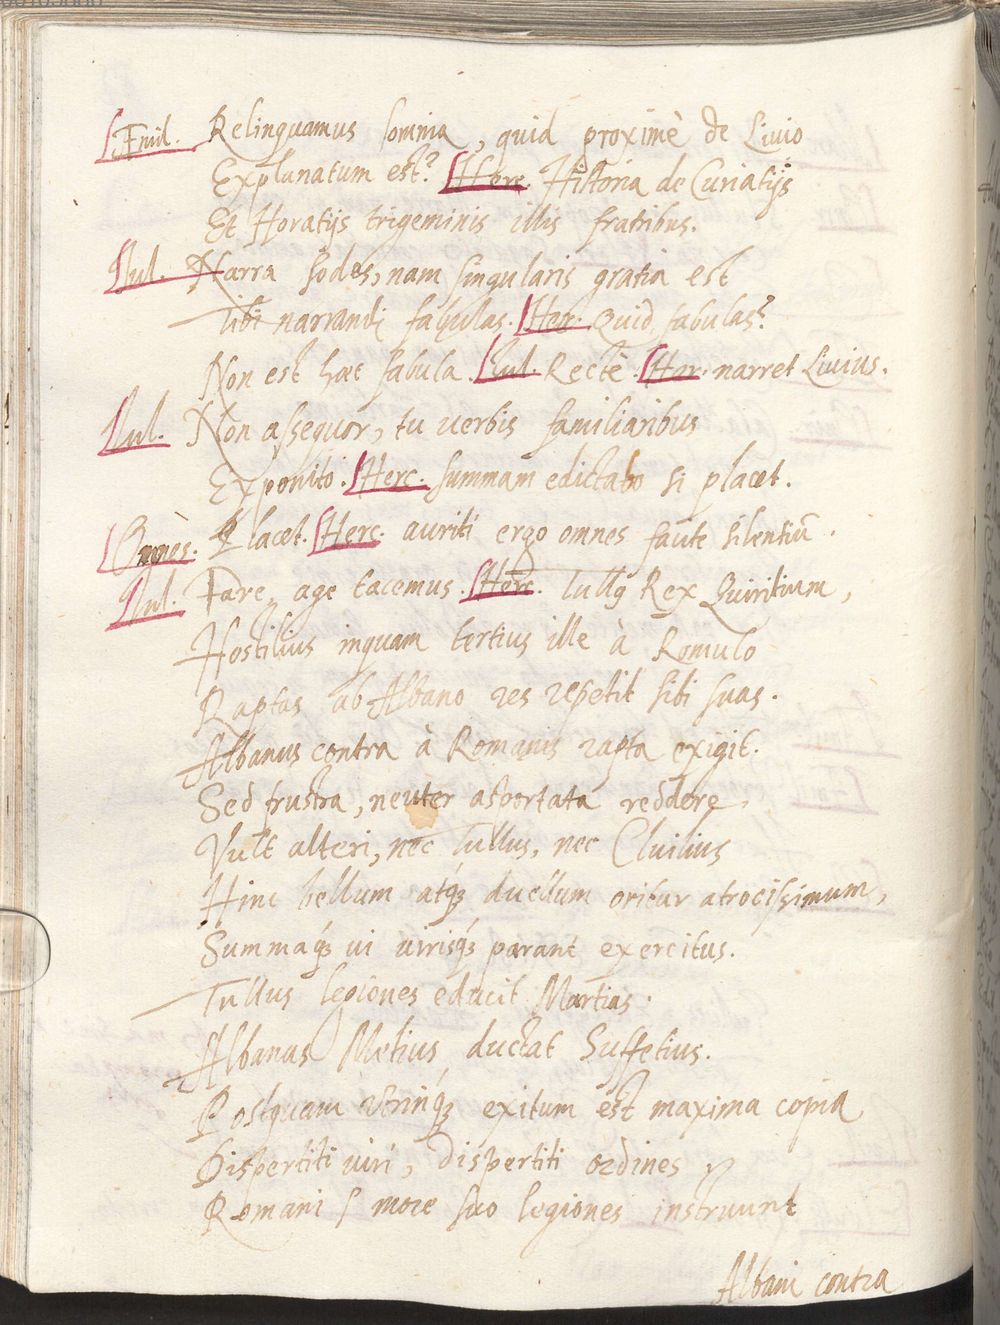 Emil. Relinquamus somnia, quid proximè de Liuio
Explanatum est? Herc. Historia de Curiatijs
Et Horatijs trigeminis illis fratribus.
Iul. Narra sodes, nam singularis gratia est
Tibi narrandi fabulas. Herc. Quid fabulas?
Non est haec fabula. Iul. Rectè. Her. narret Liuius.
Iul. Non assequor, tu verbis familiaribus
Exponito. Herc. summam edictabo si placet.
Omnes. Placet. Herc. auriti ergo omnes faute silentiū.
Iul. Fare, age tacemus. Herc. Tullꝯ Rex Quiritium,
Hostilius inquam tertius ille à Romulo
Raptas ab Albano res repetit sibi suas.
Albanus contra à Romanis rapta exigit.
Sed frustra, neuter asportata reddere
Vult alteri, nec Tullus, nec Cluilius
Hinc bellum atq́ꝫ duellum oritur atrocissimum,
Summaq́ꝫ ui uirisq́ꝫ parant exercitus.
Tullus legiones educit Martias.
Albanas Metius ductat Suffetius.
Postquam utrinq́ꝫ exitum est maxima copia
Dispertiti uiri, dispertiti ordines
Romani more suo legiones instruunt
Albani contra